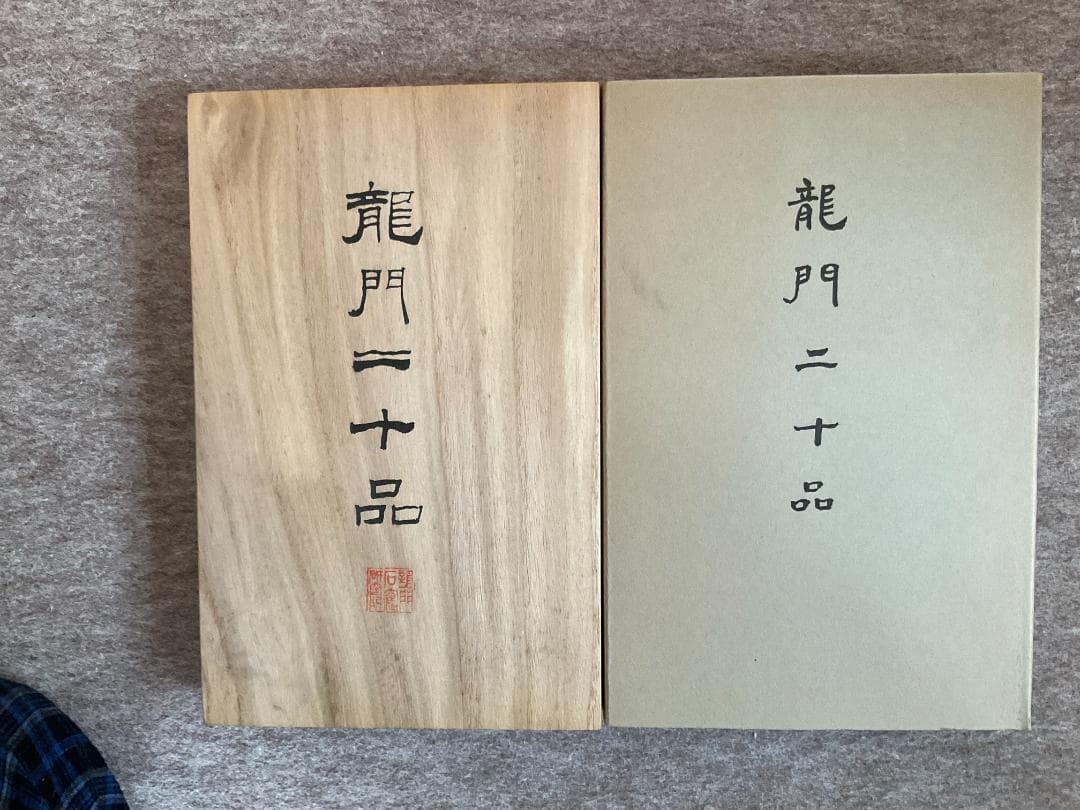 龍門二十品
龍門二十品